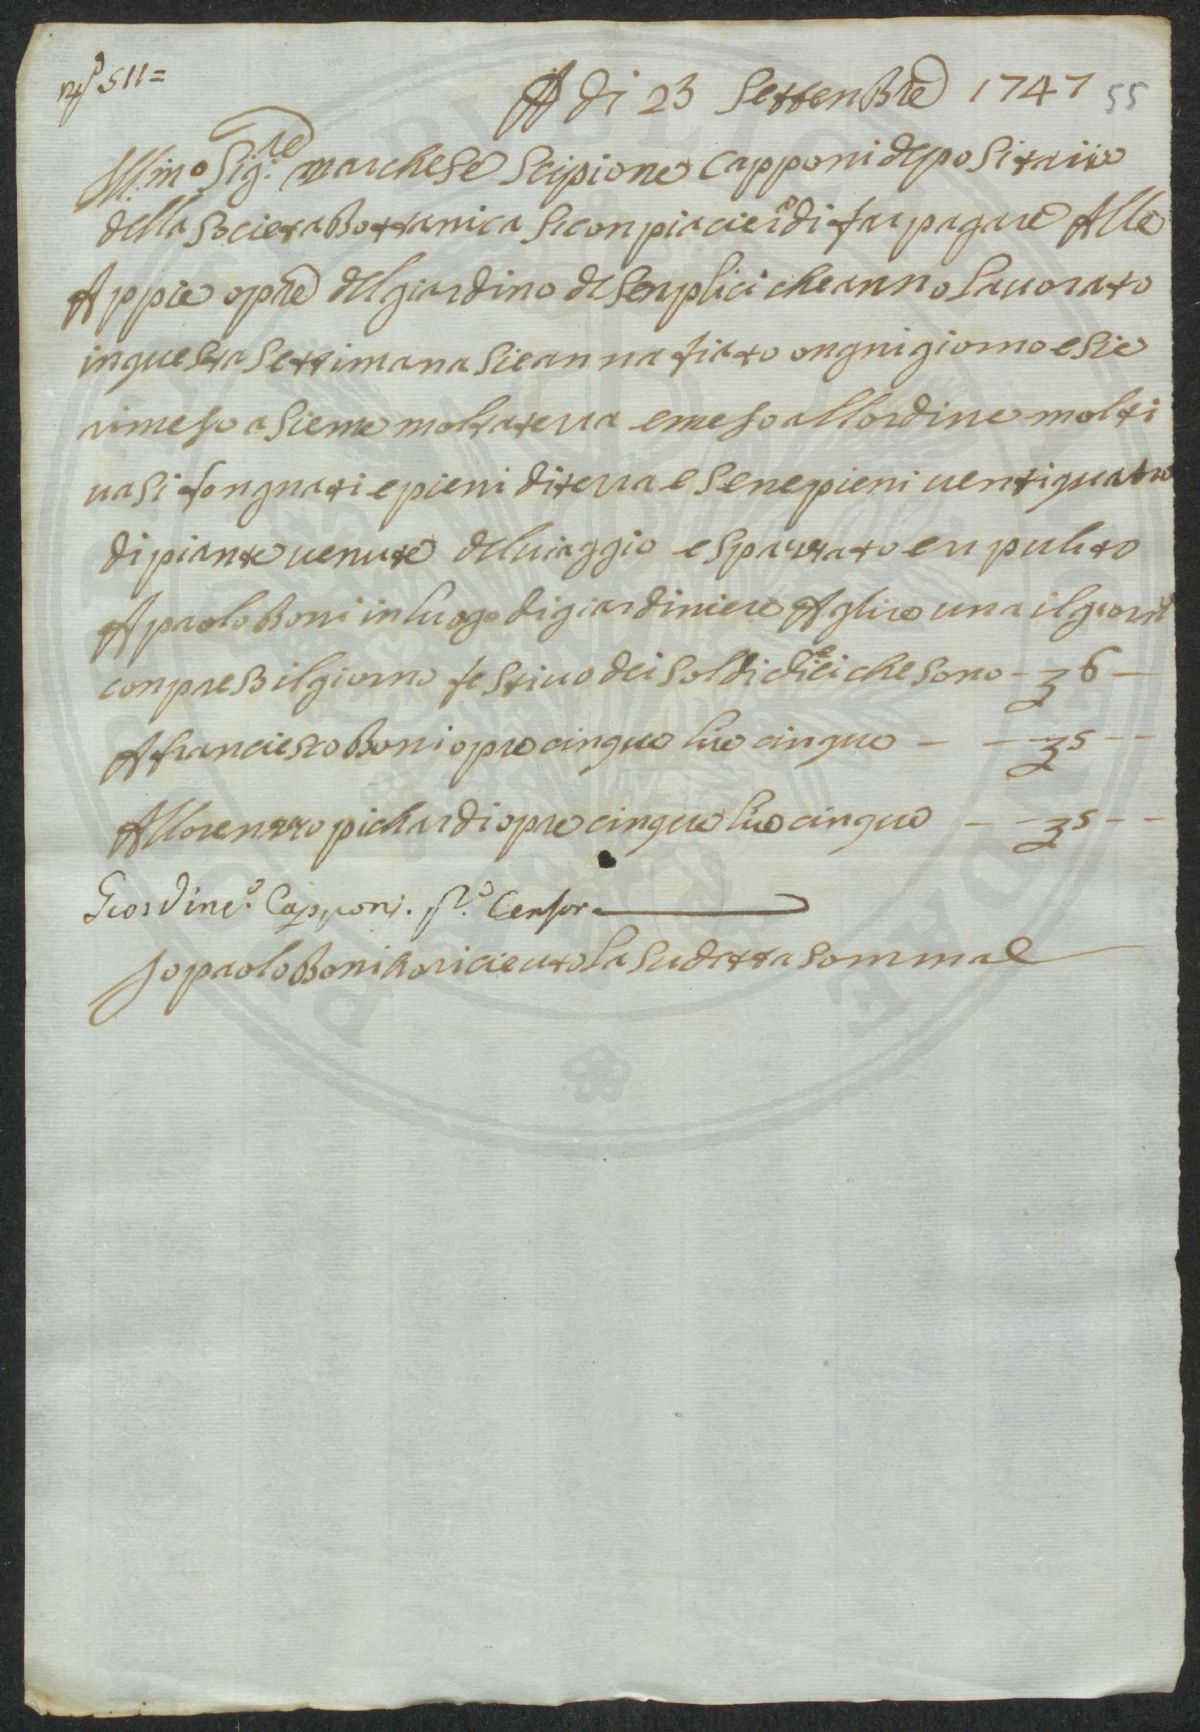 nº 511=
A di 23 SettenBre 1747 55
Ill:mo Sig:re marchese Scipione Capponi depositaiio
della Societa Bottanica si conpiacierà di far pagare Alle
Appie opre del giardino de Senplici che anno lauorato
in questa Settimana Sie anna fiato ongni giorno e Sie
rimeso a Sieme molta terra e meso all ordine molti
uasi fongnati e pieni di terra e Sene pieni uentiquatro
di piante uenute del uiaggio e spazzato e ripulito
A paolo Boni in luogo di giardiniere A lire una il giorno
conpreso il giorno festiuo dei Soldi dieci che Sono - 6 -
A franciesco Boni opre cinque lire cinque - - - 5 - -
A llorenzzo pichardi opre cinque lire cinque - - - 5 - -
Giordine. Capponi. Censore
Io paolo Boni ho riceuto la Sudetta Somma